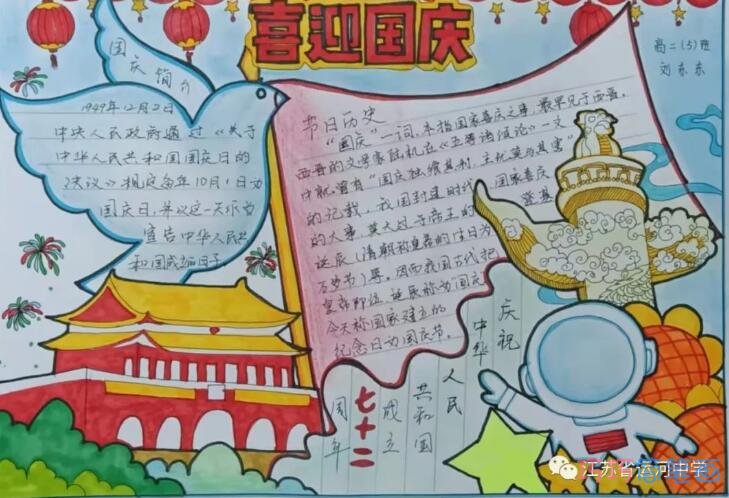 喜迎国庆
高二(5)班
刘东东
国庆简介
1949年12月2日
中央人民政府通过《关于
中华人民共和国国庆日的
决议》规定每年10月1日为
国庆日,并以这一天作为
宣告中华人民共
和国成立的日子
节日历史
"国庆"一词,本指国家喜庆之事,最早见于西晋,
西晋的文学家陆机在《五等诸侯论》一文
中就曾有"国庆独飨其利,主忧莫与其害"
的记载,我国封建时代、国家喜庆
的大事,莫大过于帝王的
登基
诞辰(清朝称皇帝的生日为
万岁节)等,因而我国古代把
皇帝即位、诞辰称为"国庆"
今天称国家建立的
纪念日为国庆节。
庆祝
中华
人民
共和国
成立
七十二
周年
江苏省运河中学